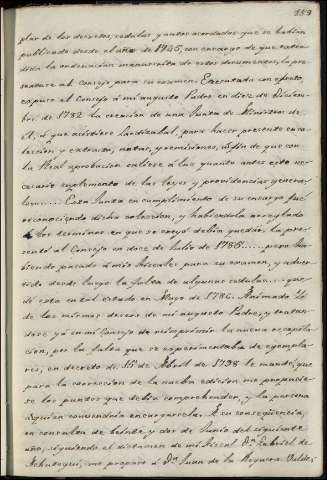 159
plar de los decretos, cedulas y autos acordados que se habian
publicado desde el año de 1745, con encargo de que exten-
dida la ordenacion manuscrita de estos documentos, la pre-
sentare al Consejo para su examen. Executada con efecto,
expuso el Consejo á mi augusto Padre en diez de Diciem-
bre de 1782 la creacion de una Junta de Ministros de
él, á que asistiere Lardizabal, para hacer presente en co-
leccion y extracto, notas, y remisiones, á fin de que con
la Real aprobacion saliere á luz quanto antes este ne-
cesario suplemento de las leyes y providencias genera-
les..... Esta Junta en cumplimiento de su encargo fue
reconociendo dicha coleccion, y habiendola arreglado
á los terminos en que se creyó debia quedar, la pre-
sentó al Consejo en doce de Julio de 1785..... pero ha-
biendo pasado á mis Fiscales para su examen, y adver-
tido desde luego la falta de algunas cedulas... que-
dó esta en tal estado en Mayo de 1786. Animado Yo
de los mismos deseos de mi augusto Padre, y tratan-
dose ya en mi Consejo de reimprimir la nueva recopila-
cion, por la falta que se experimentaba de exempla-
res, en decreto de 15 de Abril de 1798 le mandé, que
para la correccion de la nueba edicion me propusie-
se los puntos que debia comprehender, y la persona
á quien convendria encargarla. A su consequencia,
en consulta de veinte y dos de Junio del siguiente
año, siguiendo el dictamen de mi Fiscal Dn. Gabriel de
Achutegui, me propuso á Dn. Juan de la Reguera Valde-